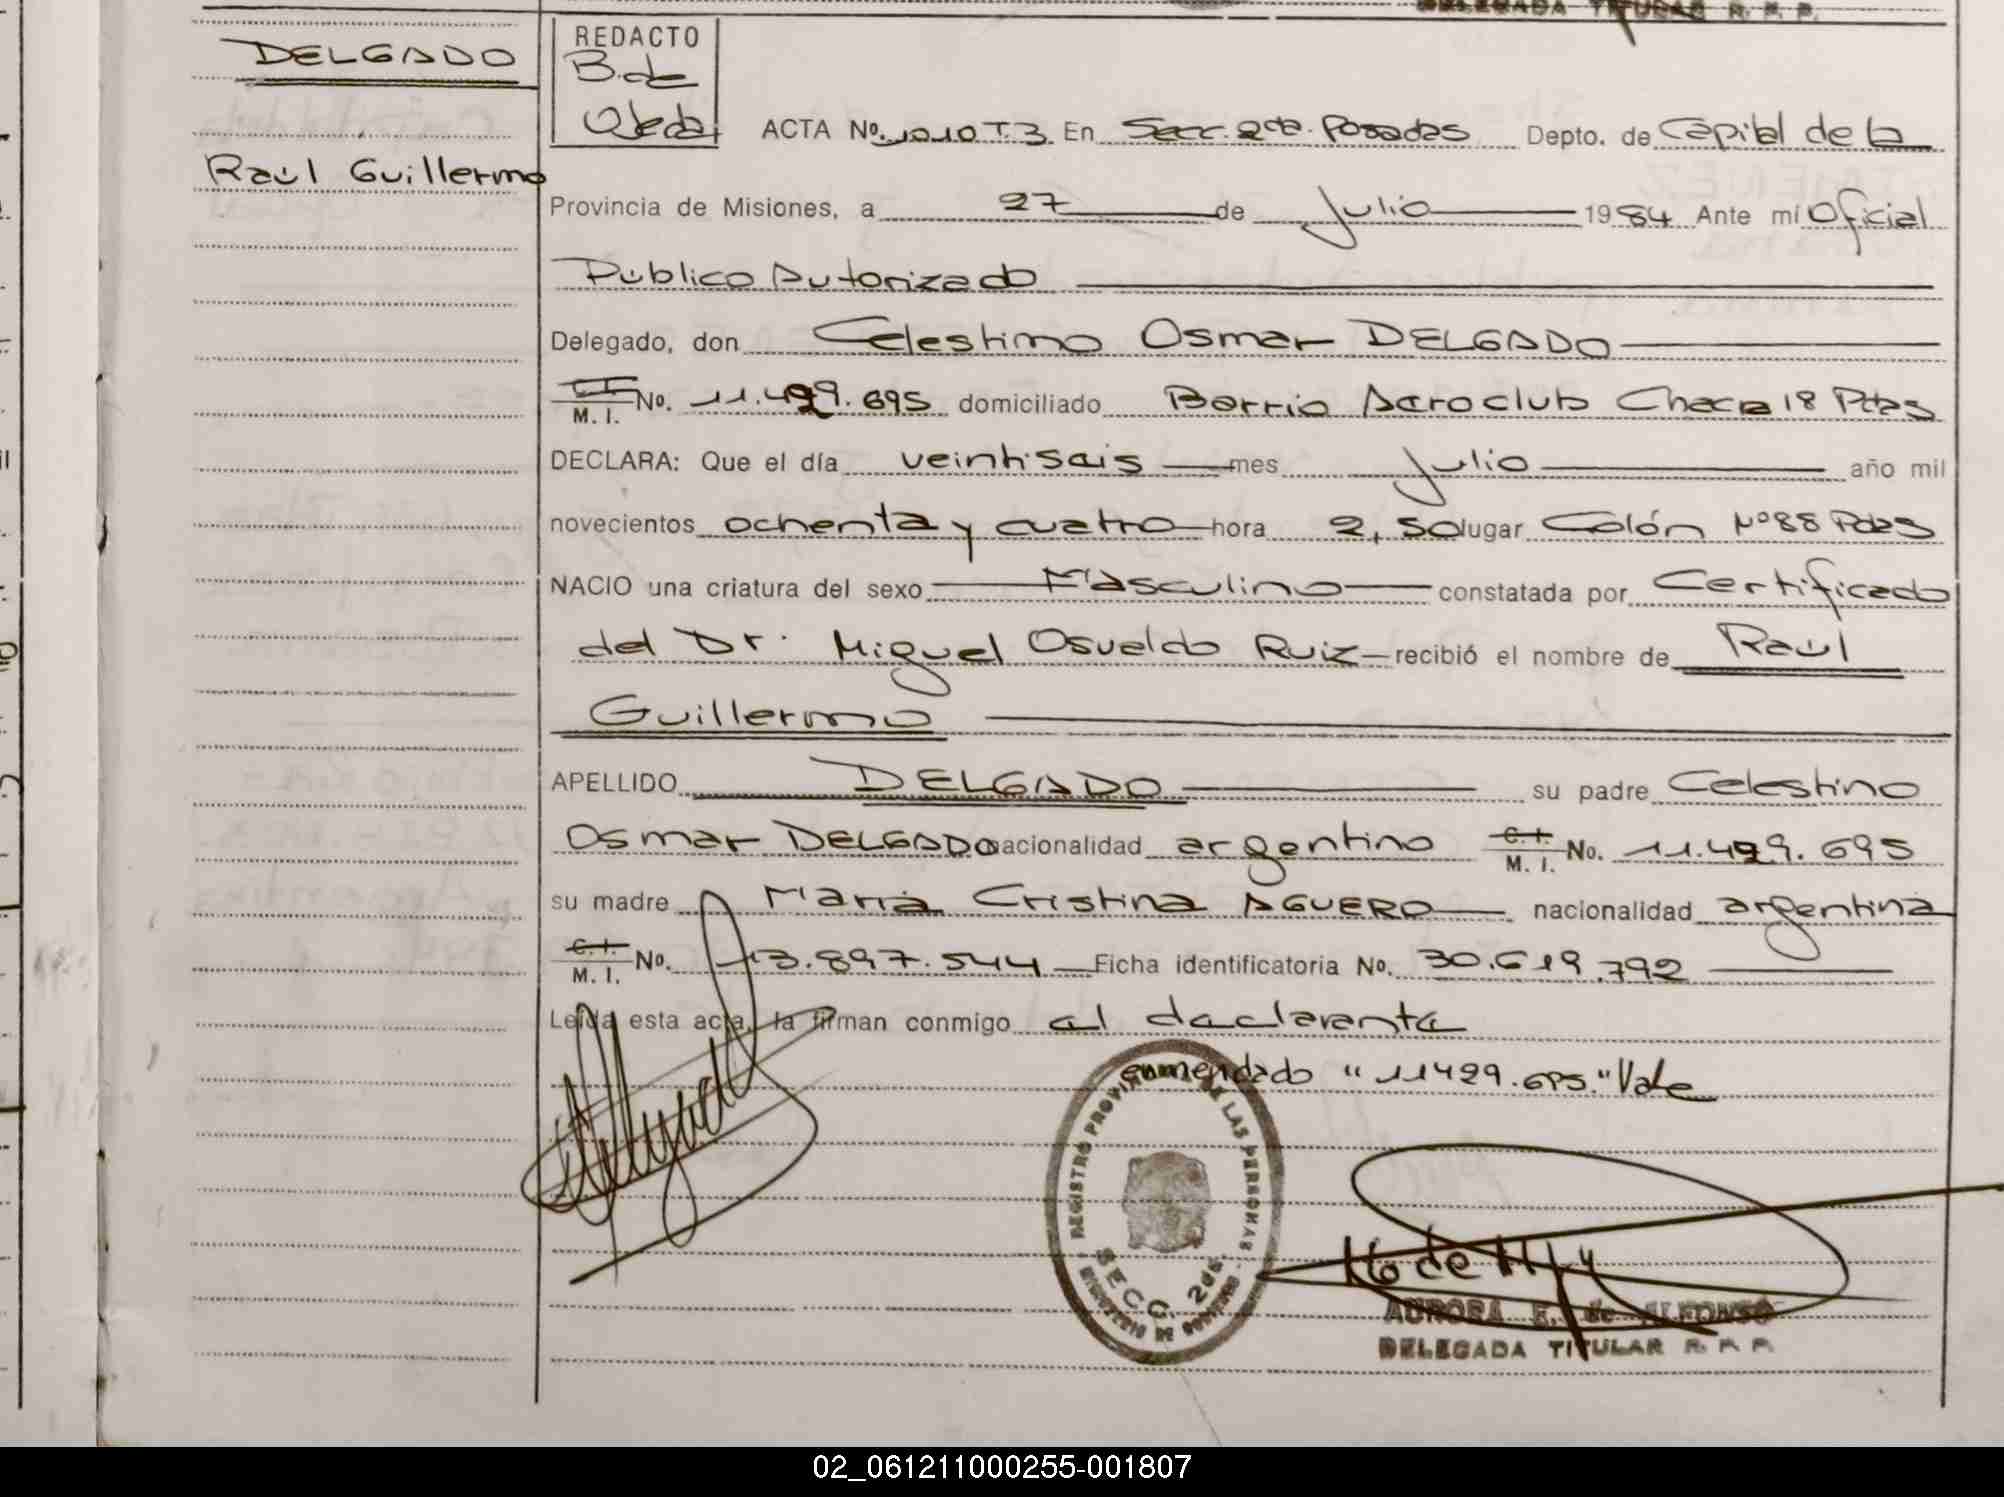 DELEGADA TITULAR R. P. P.
DELGADO
Raúl Guillermo
REDACTO
B. de
Ojeda
ACTA No. 1010 T.3 En Secc. 2da. Posadas Depto. de Capital de la
Provincia de Misiones, a 27 de Julio 1984 Ante mí Oficial
Público Autorizado
Delegado, don Celestino Osmar DELGADO
C.I. M. I. No. 11.429.695 domiciliado Barrio Aeroclub Chacra 18 Pdas
DECLARA: Que el día veintiseis mes Julio año mil
novecientos ochenta y cuatro hora 2,50 lugar Colón Nº 88 Pdas
NACIO una criatura del sexo Masculino constatada por Certificado
del Dr. Miguel Osvaldo Ruiz recibió el nombre de Raúl
Guillermo
APELLIDO DELGADO su padre Celestino
Osmar DELGADO nacionalidad argentino C.I. M. I. No. 11.429.695
su madre María Cristina AGUERO nacionalidad argentina
C.I. M. I. No. 13.897.544 Ficha identificatoria No. 30.619.792
Leída esta acta, la firman conmigo el declarante
enmendado "11429.695." Vale
REGISTRO PROVINCIAL DE LAS PERSONAS
SECC. 2da.
MINISTERIO DE GOBIERNO
AURORA E. de ALFONSO
DELEGADA TITULAR R. P. P.
02_061211000255-001807